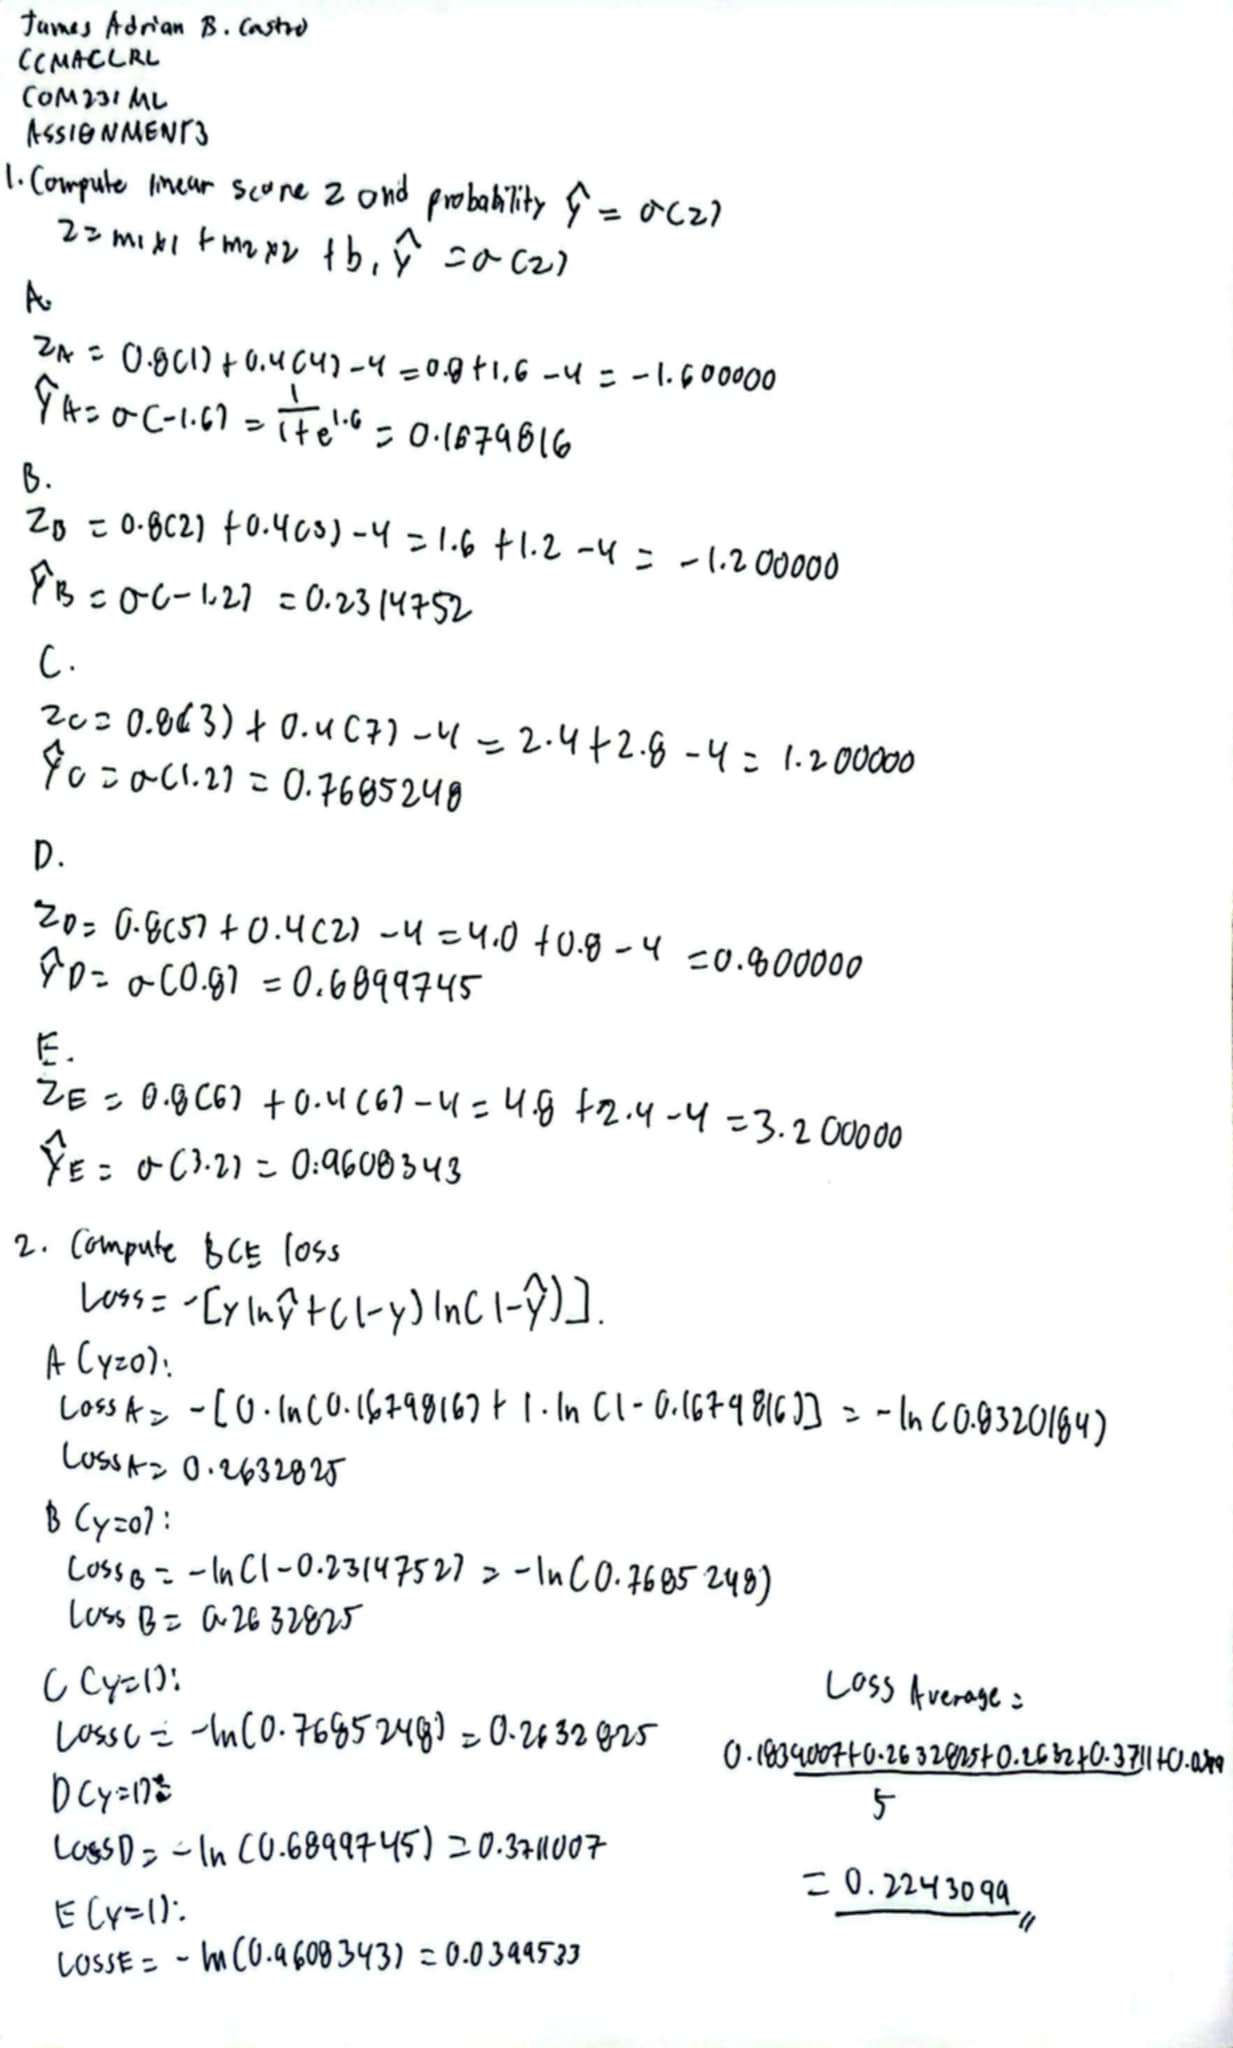 James Adrian B. Castro
CCMACLRL
COM231 ML
ASSIGNMENT3
1. Compute linear score z and probability ŷ = σ(z)
z = m1x1 + m2x2 + b, ŷ = σ(z)
A.
zA = 0.8(1) + 0.4(4) - 4 = 0.8 + 1.6 - 4 = -1.600000
ŷA = σ(-1.6) = 1/(1+e^1.6) = 0.1679816
B.
zB = 0.8(2) + 0.4(3) - 4 = 1.6 + 1.2 - 4 = -1.200000
ŷB = σ(-1.2) = 0.2314752
C.
zC = 0.8(3) + 0.4(7) - 4 = 2.4 + 2.8 - 4 = 1.200000
ŷC = σ(1.2) = 0.7685248
D.
zD = 0.8(5) + 0.4(2) - 4 = 4.0 + 0.8 - 4 = 0.800000
ŷD = σ(0.8) = 0.6899745
E.
zE = 0.8(6) + 0.4(6) - 4 = 4.8 + 2.4 - 4 = 3.200000
ŷE = σ(3.2) = 0.9608343
2. Compute BCE loss
Loss = -[y ln ŷ + (1-y) ln(1-ŷ)].
A (y=0):
Loss A = -[0·ln(0.1679816) + 1·ln(1-0.1679816)] = -ln(0.8320184)
Loss A = 0.2632825
B (y=0):
Loss B = -ln(1-0.2314752) = -ln(0.7685248)
Loss B = 0.2632825
C (y=1):
Loss C = -ln(0.7685248) = 0.2632825
D (y=1):
Loss D = -ln(0.6899745) = 0.3711007
E (y=1):
Loss E = -ln(0.9608343) = 0.0399533
Loss Average =
0.1839007+0.2632825+0.2632+0.3711+0.0399
5
= 0.2243099